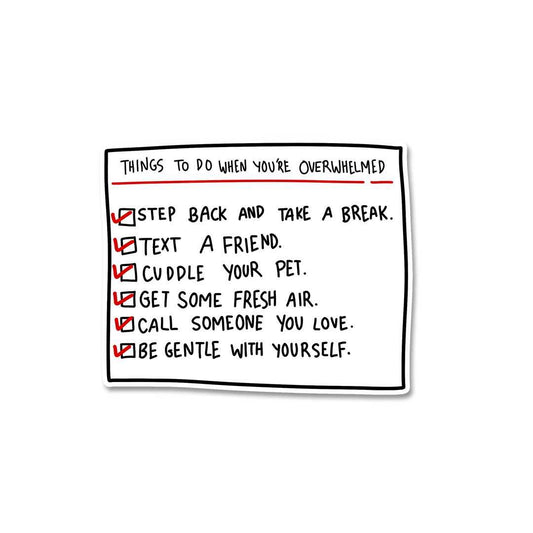 THINGS TO DO WHEN YOU'RE OVERWHELMED
STEP BACK AND TAKE A BREAK.
TEXT A FRIEND.
CUDDLE YOUR PET.
GET SOME FRESH AIR.
CALL SOMEONE YOU LOVE.
BE GENTLE WITH YOURSELF.